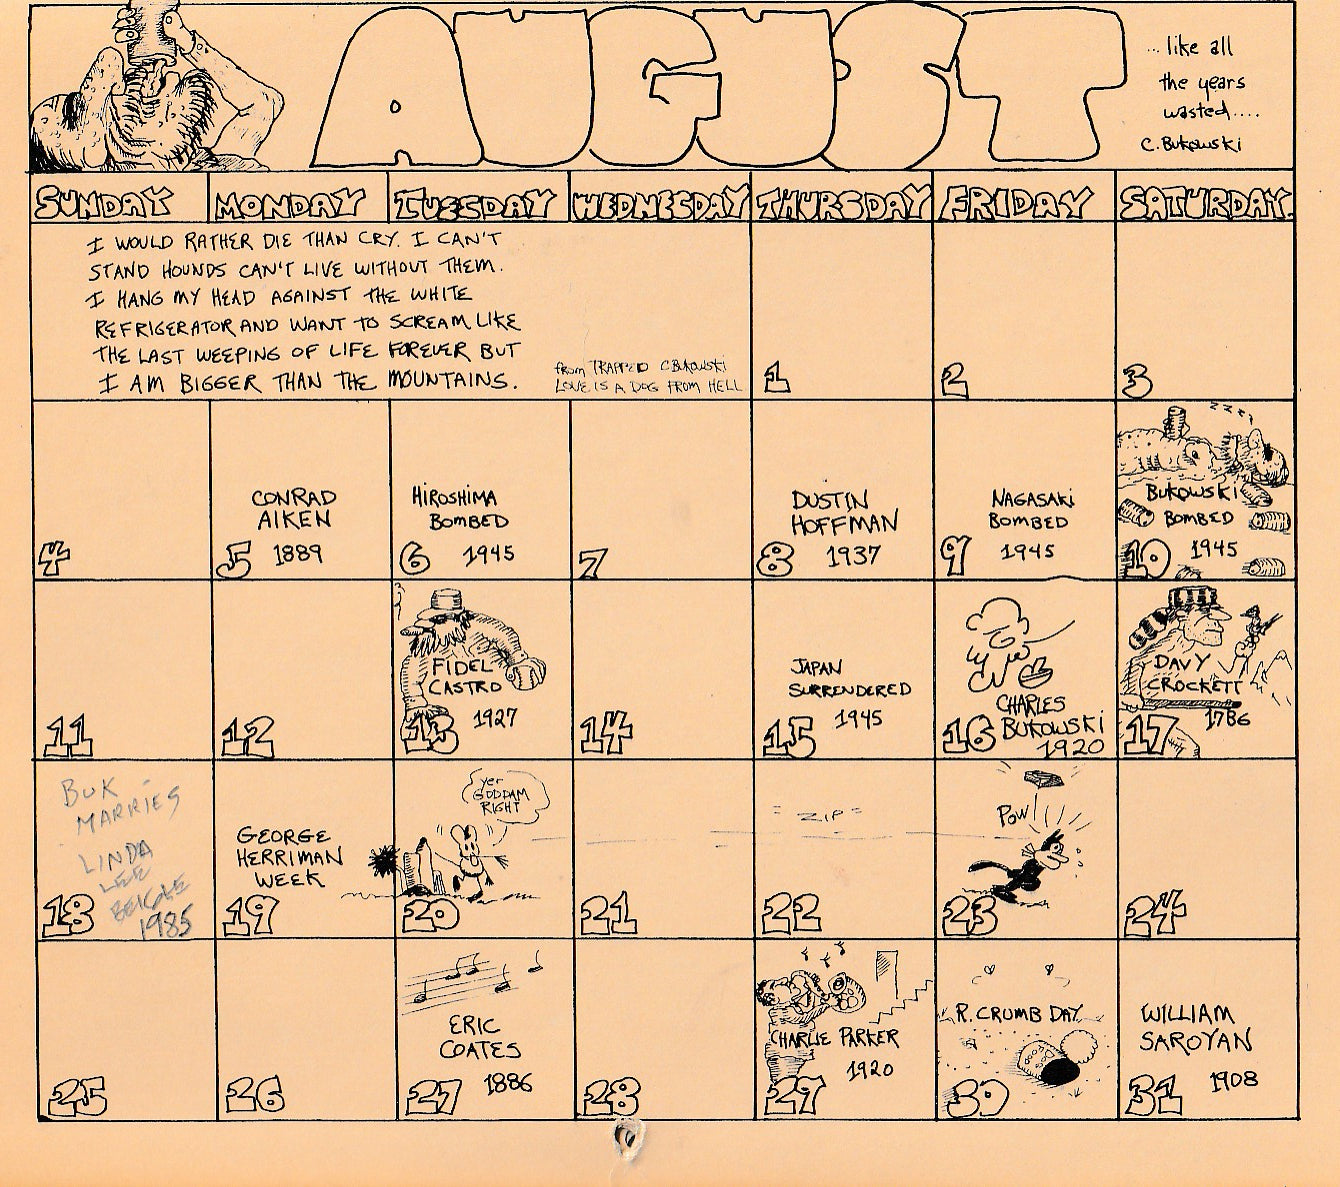 AUGUST
... like all
the years
wasted....
C. Bukowski
SUNDAY MONDAY TUESDAY WEDNESDAY THURSDAY FRIDAY SATURDAY
I WOULD RATHER DIE THAN CRY. I CAN'T
STAND HOUNDS CAN'T LIVE WITHOUT THEM.
I HANG MY HEAD AGAINST THE WHITE
REFRIGERATOR AND WANT TO SCREAM LIKE
THE LAST WEEPING OF LIFE FOREVER BUT
I AM BIGGER THAN THE MOUNTAINS.
from TRAPPED C BUKOWSKI
LOVE IS A DOG FROM HELL
1
2
3
4
CONRAD
AIKEN
5 1889
HIROSHIMA
BOMBED
6 1945
7
DUSTIN
HOFFMAN
8 1937
NAGASAKI
BOMBED
9 1945
z z z z
BUKOWSKI
BOMBED
10 1945
11
12
FIDEL
CASTRO
13 1927
14
JAPAN
SURRENDERED
15 1945
CHARLES
16 BUKOWSKI
1920
DAVY
CROCKETT
17 1786
BUK
MARRIES
LINDA
LEE
BEIGLE
18 1985
GEORGE
HERRIMAN
WEEK
19
yer
GODDAM
RIGHT
20
21
= ZIP =
22
POW
23
24
25
26
ERIC
COATES
27 1886
28
CHARLIE PARKER
29 1920
R. CRUMB DAY
30
WILLIAM
SAROYAN
31 1908